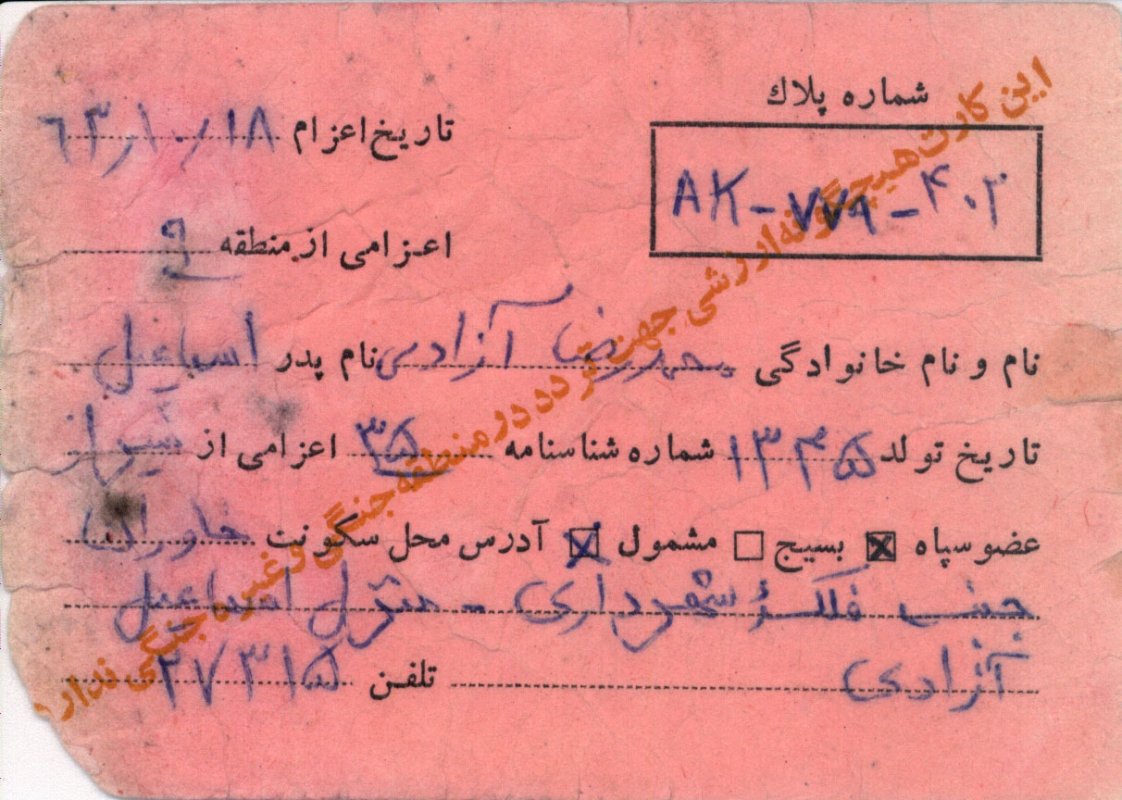 شماره پلاك
AK-779-403
تاریخ اعزام 63/10/18
اعزامی از منطقه 9
نام و نام خانوادگی محمدرضا آزادی نام پدر اسماعیل
تاریخ تولد ۱۳۴۵ شماره شناسنامه ۳۵ اعزامی از شیراز
عضو سپاه ☒ بسیج ☐ مشمول ☒ آدرس محل سکونت خاوران
جنب فلکهٔ شهرداری - منزل اسماعیل
آزادی تلفن ۲۷۳۱۵
این کارت هیچگونه ارزشی جهت تردد در منطقه جنگی و غیره جنگی ندارد